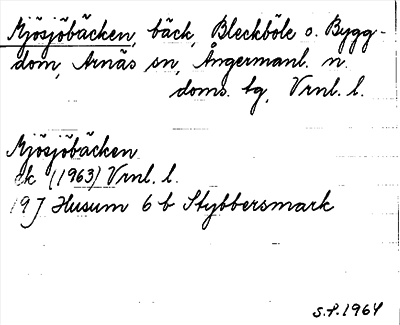 Mjösjöbäcken, bäck, Bleckböle o. Bygg-
dom, Arnäs sn, Ångermanl. n.
doms. tg, Vrnl. l.
Mjösjöbäcken
ek (1963) Vrnl. l.
19 J Husum 6 b Stybbersmark
S.F. 1964